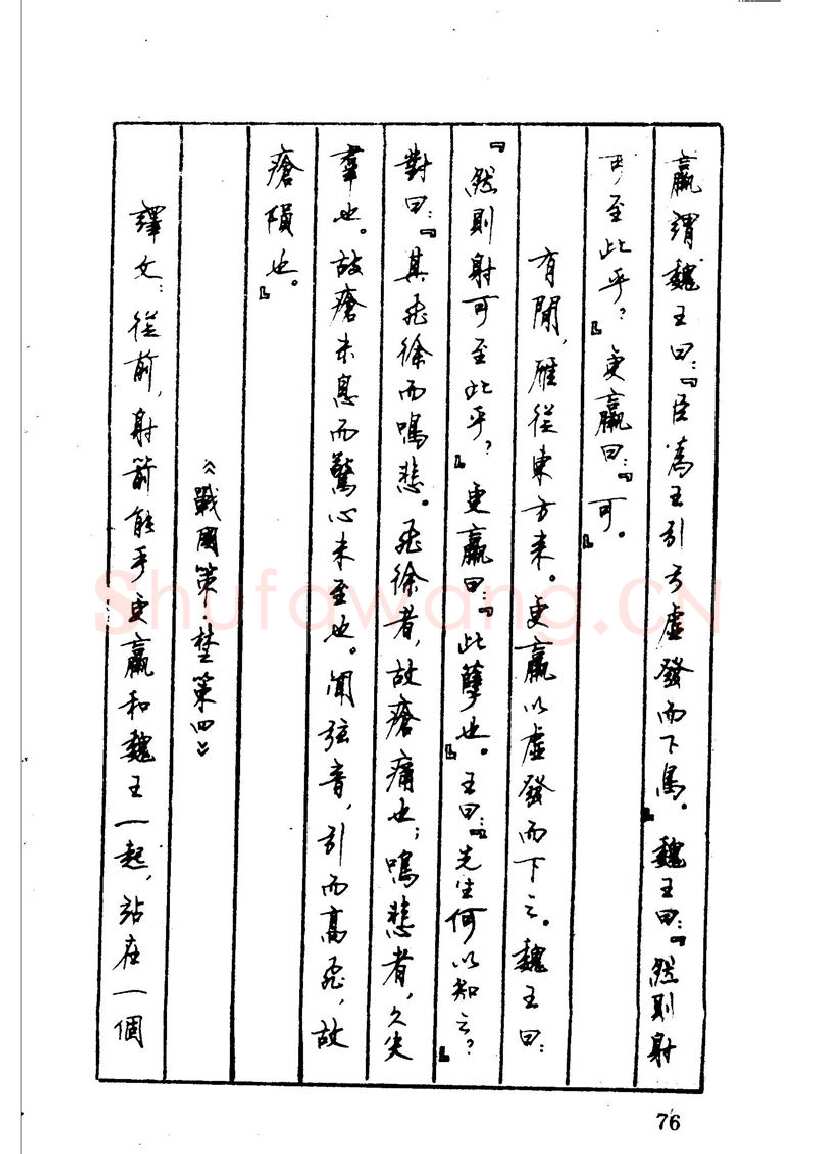 羸謂魏王曰：『臣為王引弓虛發而下鳥。』魏王曰：『然則射
可至此乎？』更羸曰：『可。』
有間，雁從東方来。更羸以虛發而下之。魏王曰：
『然則射可至此乎？』更羸曰：『此孽也。』王曰：『先生何以知之？』
對曰：『其飛徐而鳴悲。飛徐者，故瘡痛也；鳴悲者，久失
羣也。故瘡未息而驚心未至也。聞弦音，引而高飛，故
瘡隕也。』
《戰國策·楚策四》
譯文：從前，射箭能手更羸和魏王一起，站在一個
76
Shufawang.CN